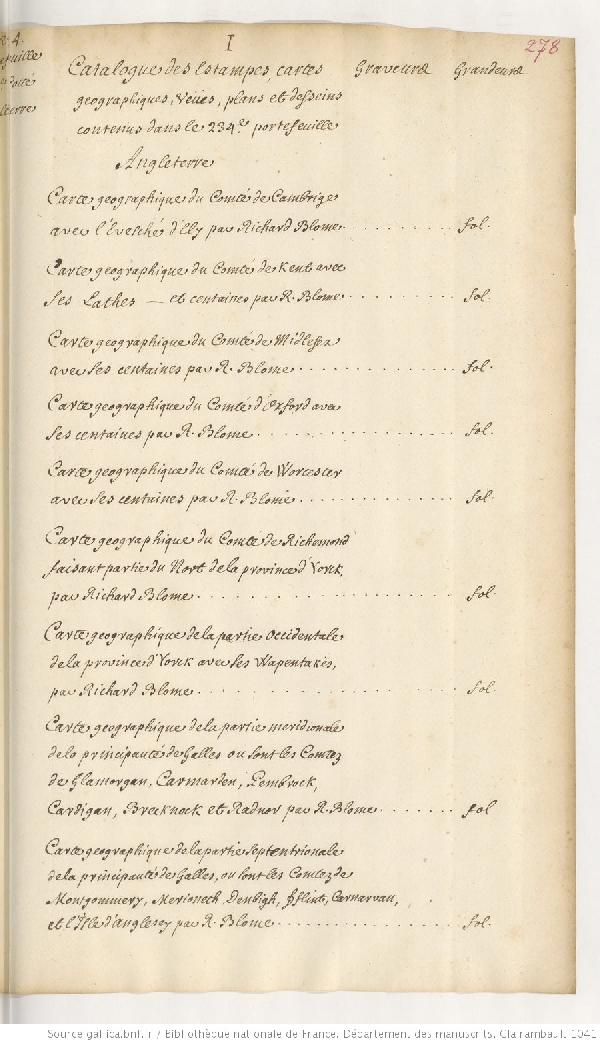 I
278
Catalogue des Estampes cartes Graveurs Grandeurs
geographiques, Veües, plans et desseins
contenus dans le 234.e portefeuille
Angleterre
Carte geographique du Comté de Cambrige
avec l'Evesché d'Ely par Richard Blome. fol.
Carte geographique du Comté de Kent avec
ses Lathes — et centaines par R. Blome fol.
Carte geographique du Comté de Midlesex
avec ses centaines par R. Blome fol.
Carte geographique du Comté d'Oxford avec
ses centaines par R. Blome fol.
Carte geographique du Comté de Worcester
avec ses centaines par R. Blome fol.
Carte geographique du Comté de Richemond
faisant partie du Nort de la province d'Yorck,
par Richard Blome fol.
Carte geographique de la partie Occidentale
de la province d'Yorck avec ses Wapentakes,
par Richard Blome fol.
Carte geographique de la partie meridionale
de la principauté de Galles ou sont les Comtez
de Glamorgan, Carmarden, Pembrock,
Cardigan, Brecknock et Radnor par R. Blome fol
Carte geographique de la partie Septentrionale
de la principauté de Galles, ou sont les Comtez de
Montgommery, Merionech, Denbigh, fflint, Carnarvan,
et l'Isle d'Anglesey par R. Blome fol.
Source gallica.bnf.fr / Bibliothèque nationale de France. Département des manuscrits. Clairambault 1041